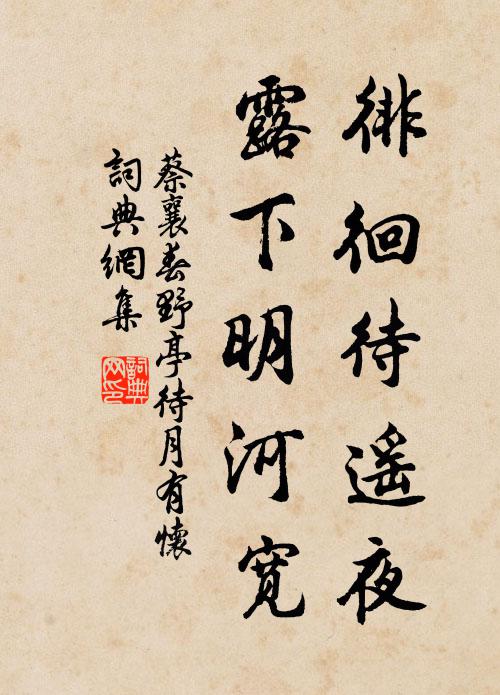 徘徊待遥夜
露下明河宽
蔡襄春野亭待月有懷
詞典網集
詞典网印